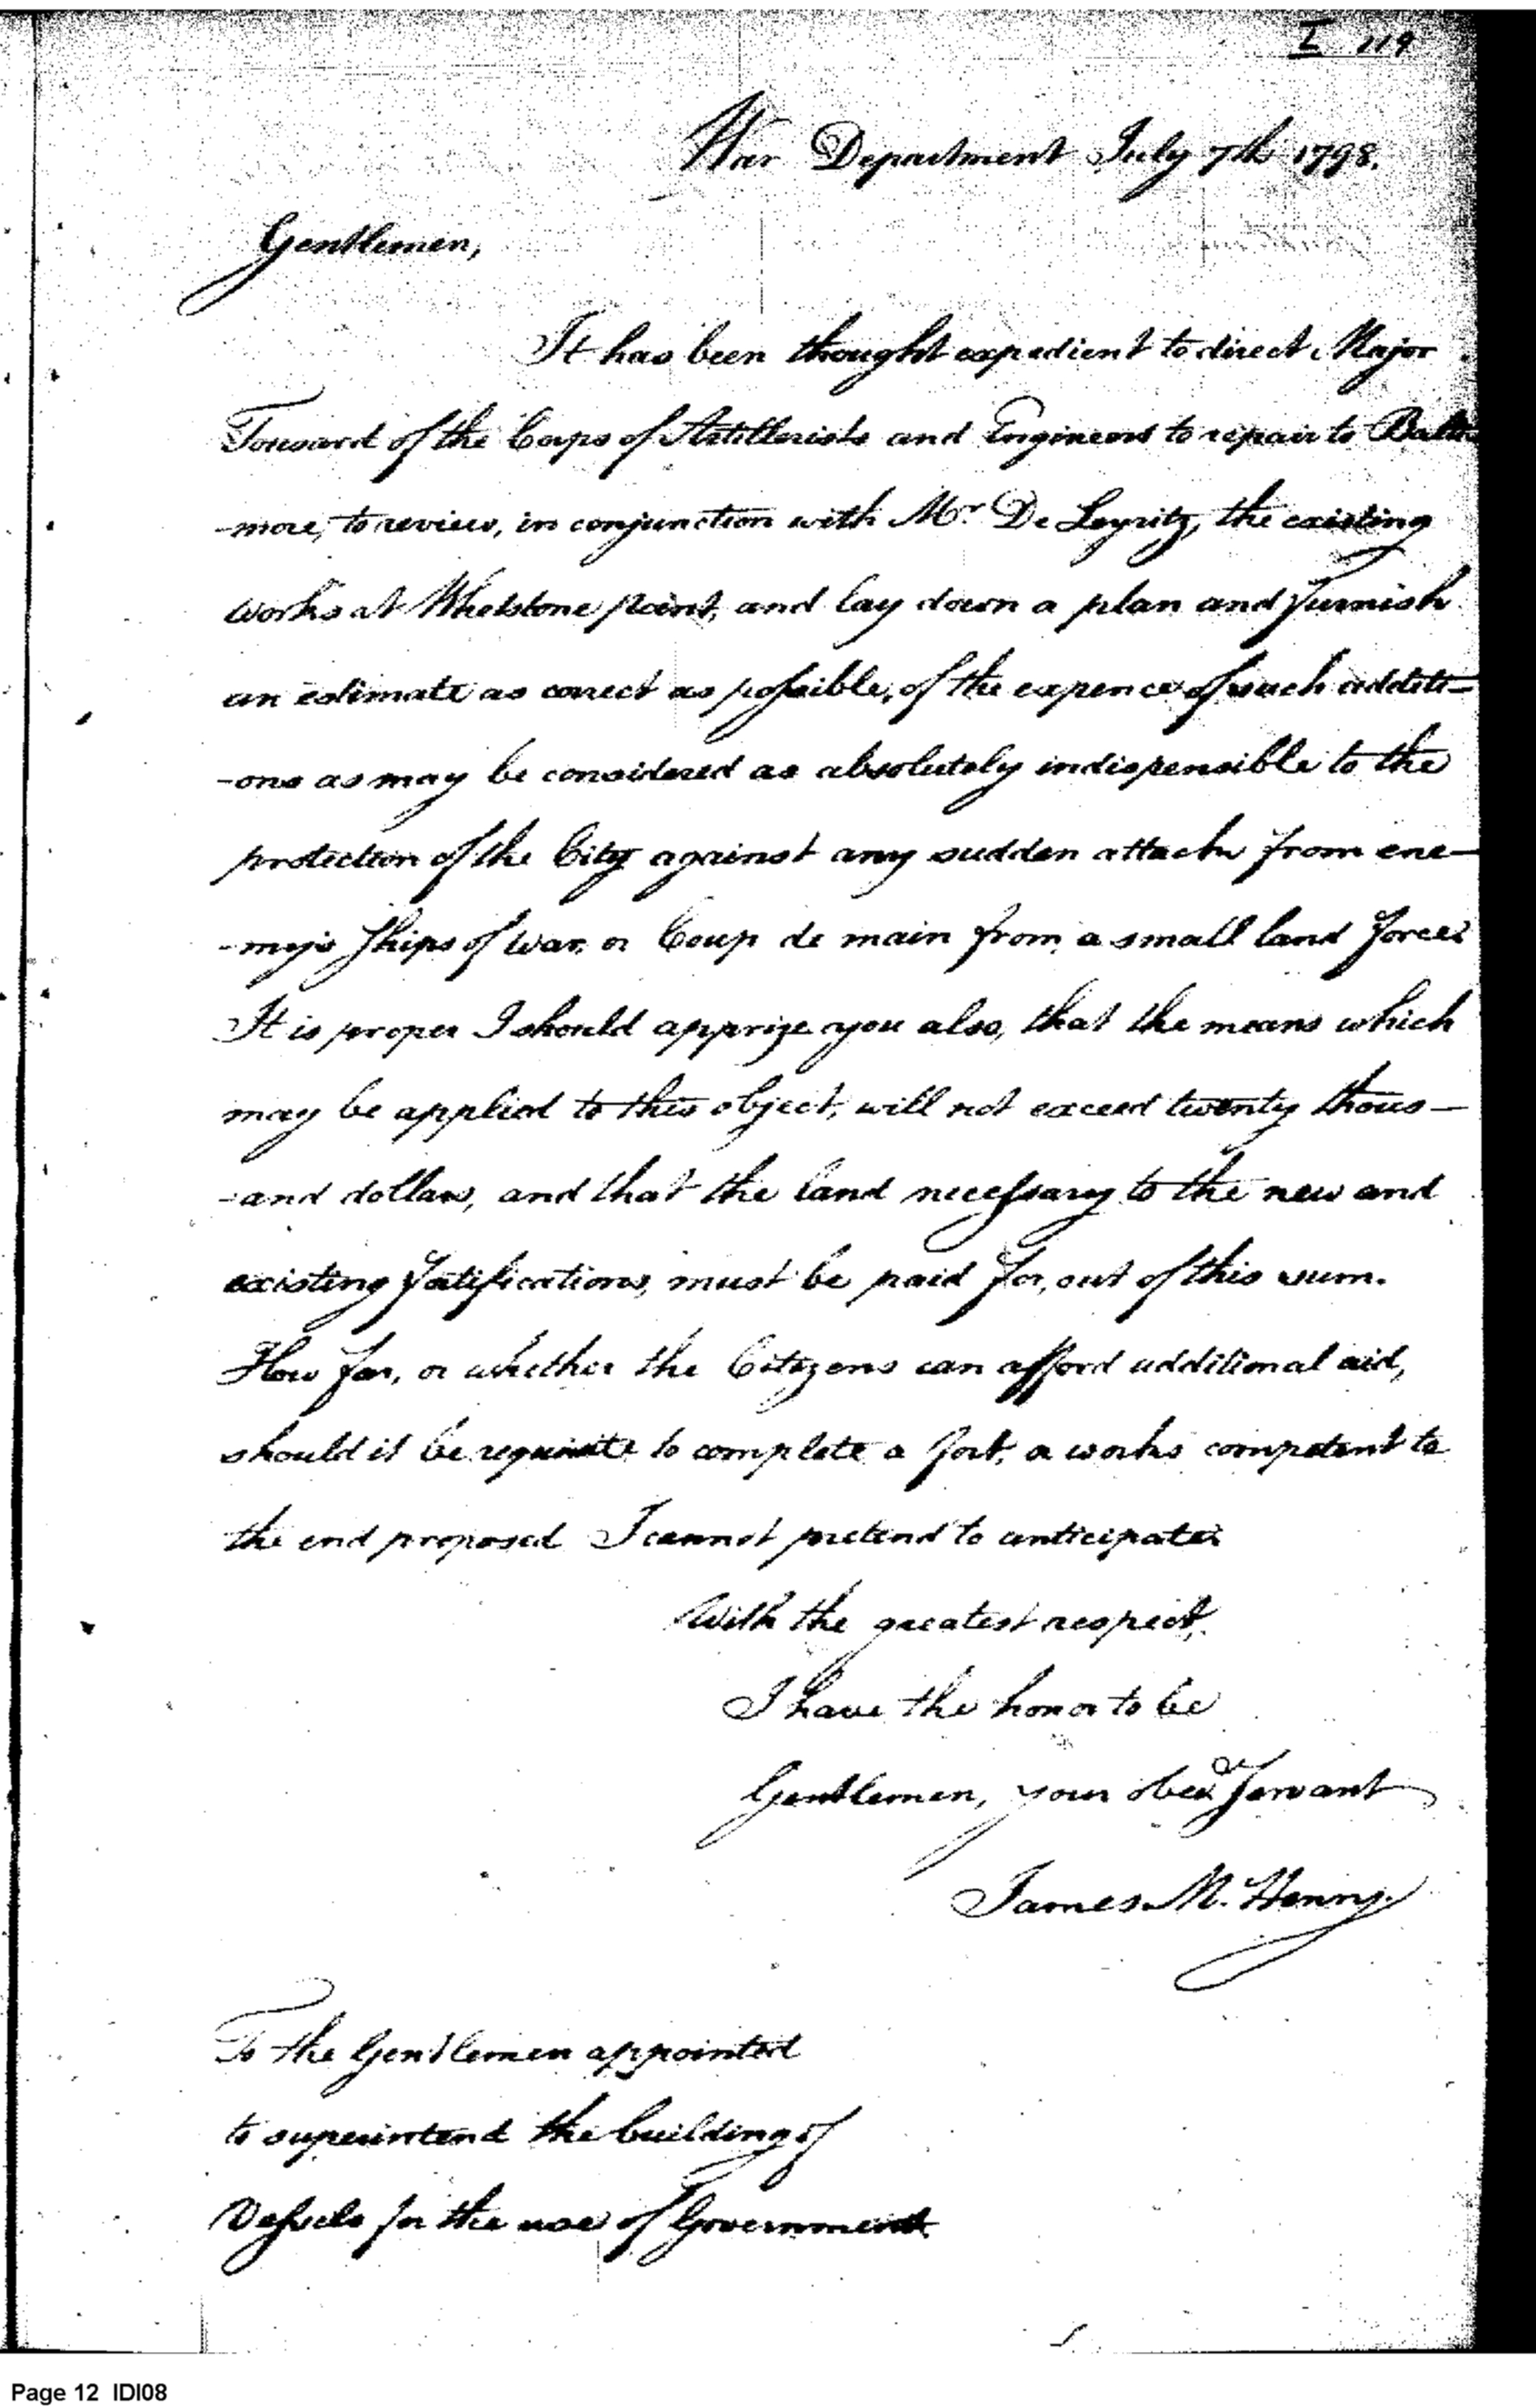 I 119
War Department July 7th 1798.
Gentlemen,
It has been thought expedient to direct Major
Tousard of the Corps of Artillerists and Engineers to repair to Balti
-more, to review, in conjunction with Mr De Leyritz, the existing
works at Whetstone point, and lay down a plan and furnish
an estimate as correct as possible, of the expence of such additi-
-ons as may be considered as absolutely indispensible to the
protection of the City against any sudden attack from ene-
-my's ships of war or Coup de main from a small land force.
It is proper I should apprize you also, that the means which
may be applied to this object, will not exceed twenty thous-
-and dollars, and that the land necessary to the new and
existing fortifications, must be paid for, out of this sum.
How far, or whether the Citizens can afford additional aid,
should it be requisite to complete a fort, or works competent to
the end proposed I cannot pretend to anticipate.
With the greatest respect,
I have the honor to be
Gentlemen, your obed Servant
James McHenry.
To the Gentlemen appointed
to superintend the building of
Vessels for the use of Government.
Page 12 IDI08